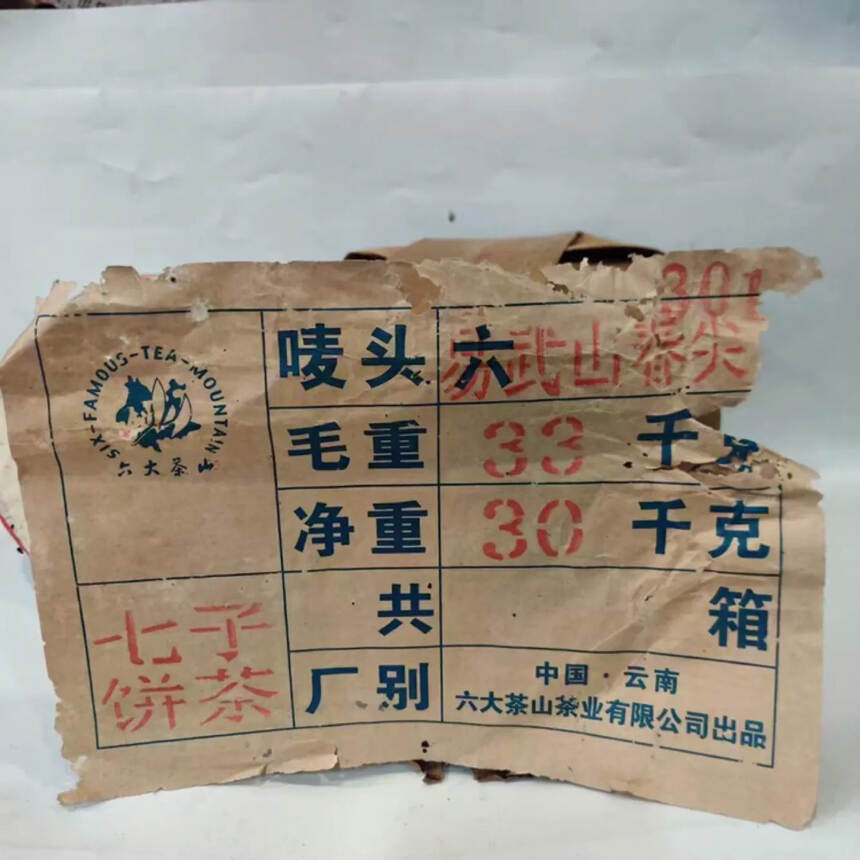 301
SIX-FAMOUS-TEA-MOUNTAIN
六大茶山
唛头 六
易武山春尖
毛重 33 千克
净重 30 千克
共 箱
七子
饼茶
厂别
中国·云南
六大茶山茶业有限公司出品